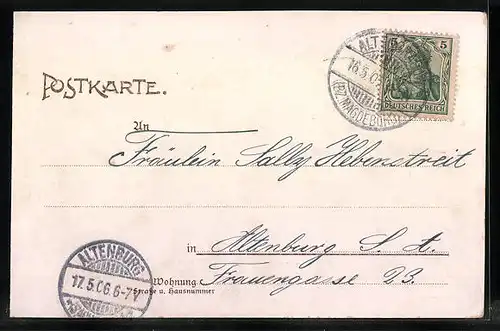 POSTKARTE.
5 5
DEUTSCHES REICH
16.5.0
(BZ. MAGDEBURG)
An
Fräulein Sally Hebenstreit
in Altenburg S. A.
Wohnung Frauengasse 23.
Straße u. Hausnummer
ALTENBURG
17.5.06. 6-7V